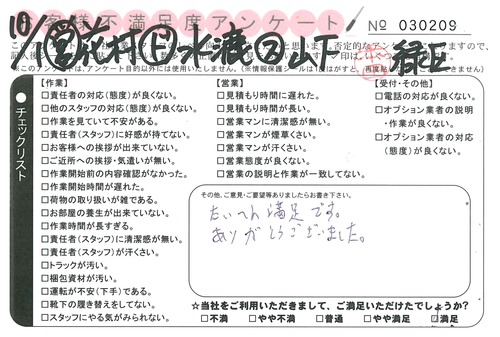 お客様不満足度アンケート
№ 030209
10/ 営 花村 水渡 山下 緑区
チェックリスト
【作業】
□責任者の対応(態度)が良くない。
□他のスタッフの対応(態度)が良くない。
□作業を見ていて不安がある。
□責任者(スタッフ)に好感が持てない。
□お客様への挨拶が出来ていない。
□ご近所への挨拶・気遣いが無い。
□作業開始前の内容確認がなかった。
□作業開始時間が遅れた。
□荷物の取り扱いが雑である。
□お部屋の養生が出来ていない。
□作業時間が長すぎる。
□責任者(スタッフ)に清潔感が無い。
□責任者(スタッフ)が汗くさい。
□トラックが汚い。
□梱包資材が汚い。
□運転が不安(下手)である。
□靴下の履き替えをしてない。
□スタッフにやる気がみられない。
【営業】
□見積もり時間に遅れた。
□見積もり時間が長い。
□営業マンに清潔感が無い。
□営業マンが煙草くさい。
□営業マンが汗くさい。
□営業態度が良くない。
□営業の説明と作業が一致してない。
【受付・その他】
□電話の対応が良くない。
□オプション業者の説明
・作業が良くない。
□オプション業者の対応
(態度)が良くない。
その他、ご意見・ご要望等ありましたらお書き下さい。
たいへん満足です。
ありがとうございました。
☆当社をご利用いただきまして、ご満足いただけたでしょうか?
□不満 □やや不満 □普通 □やや満足 □満足